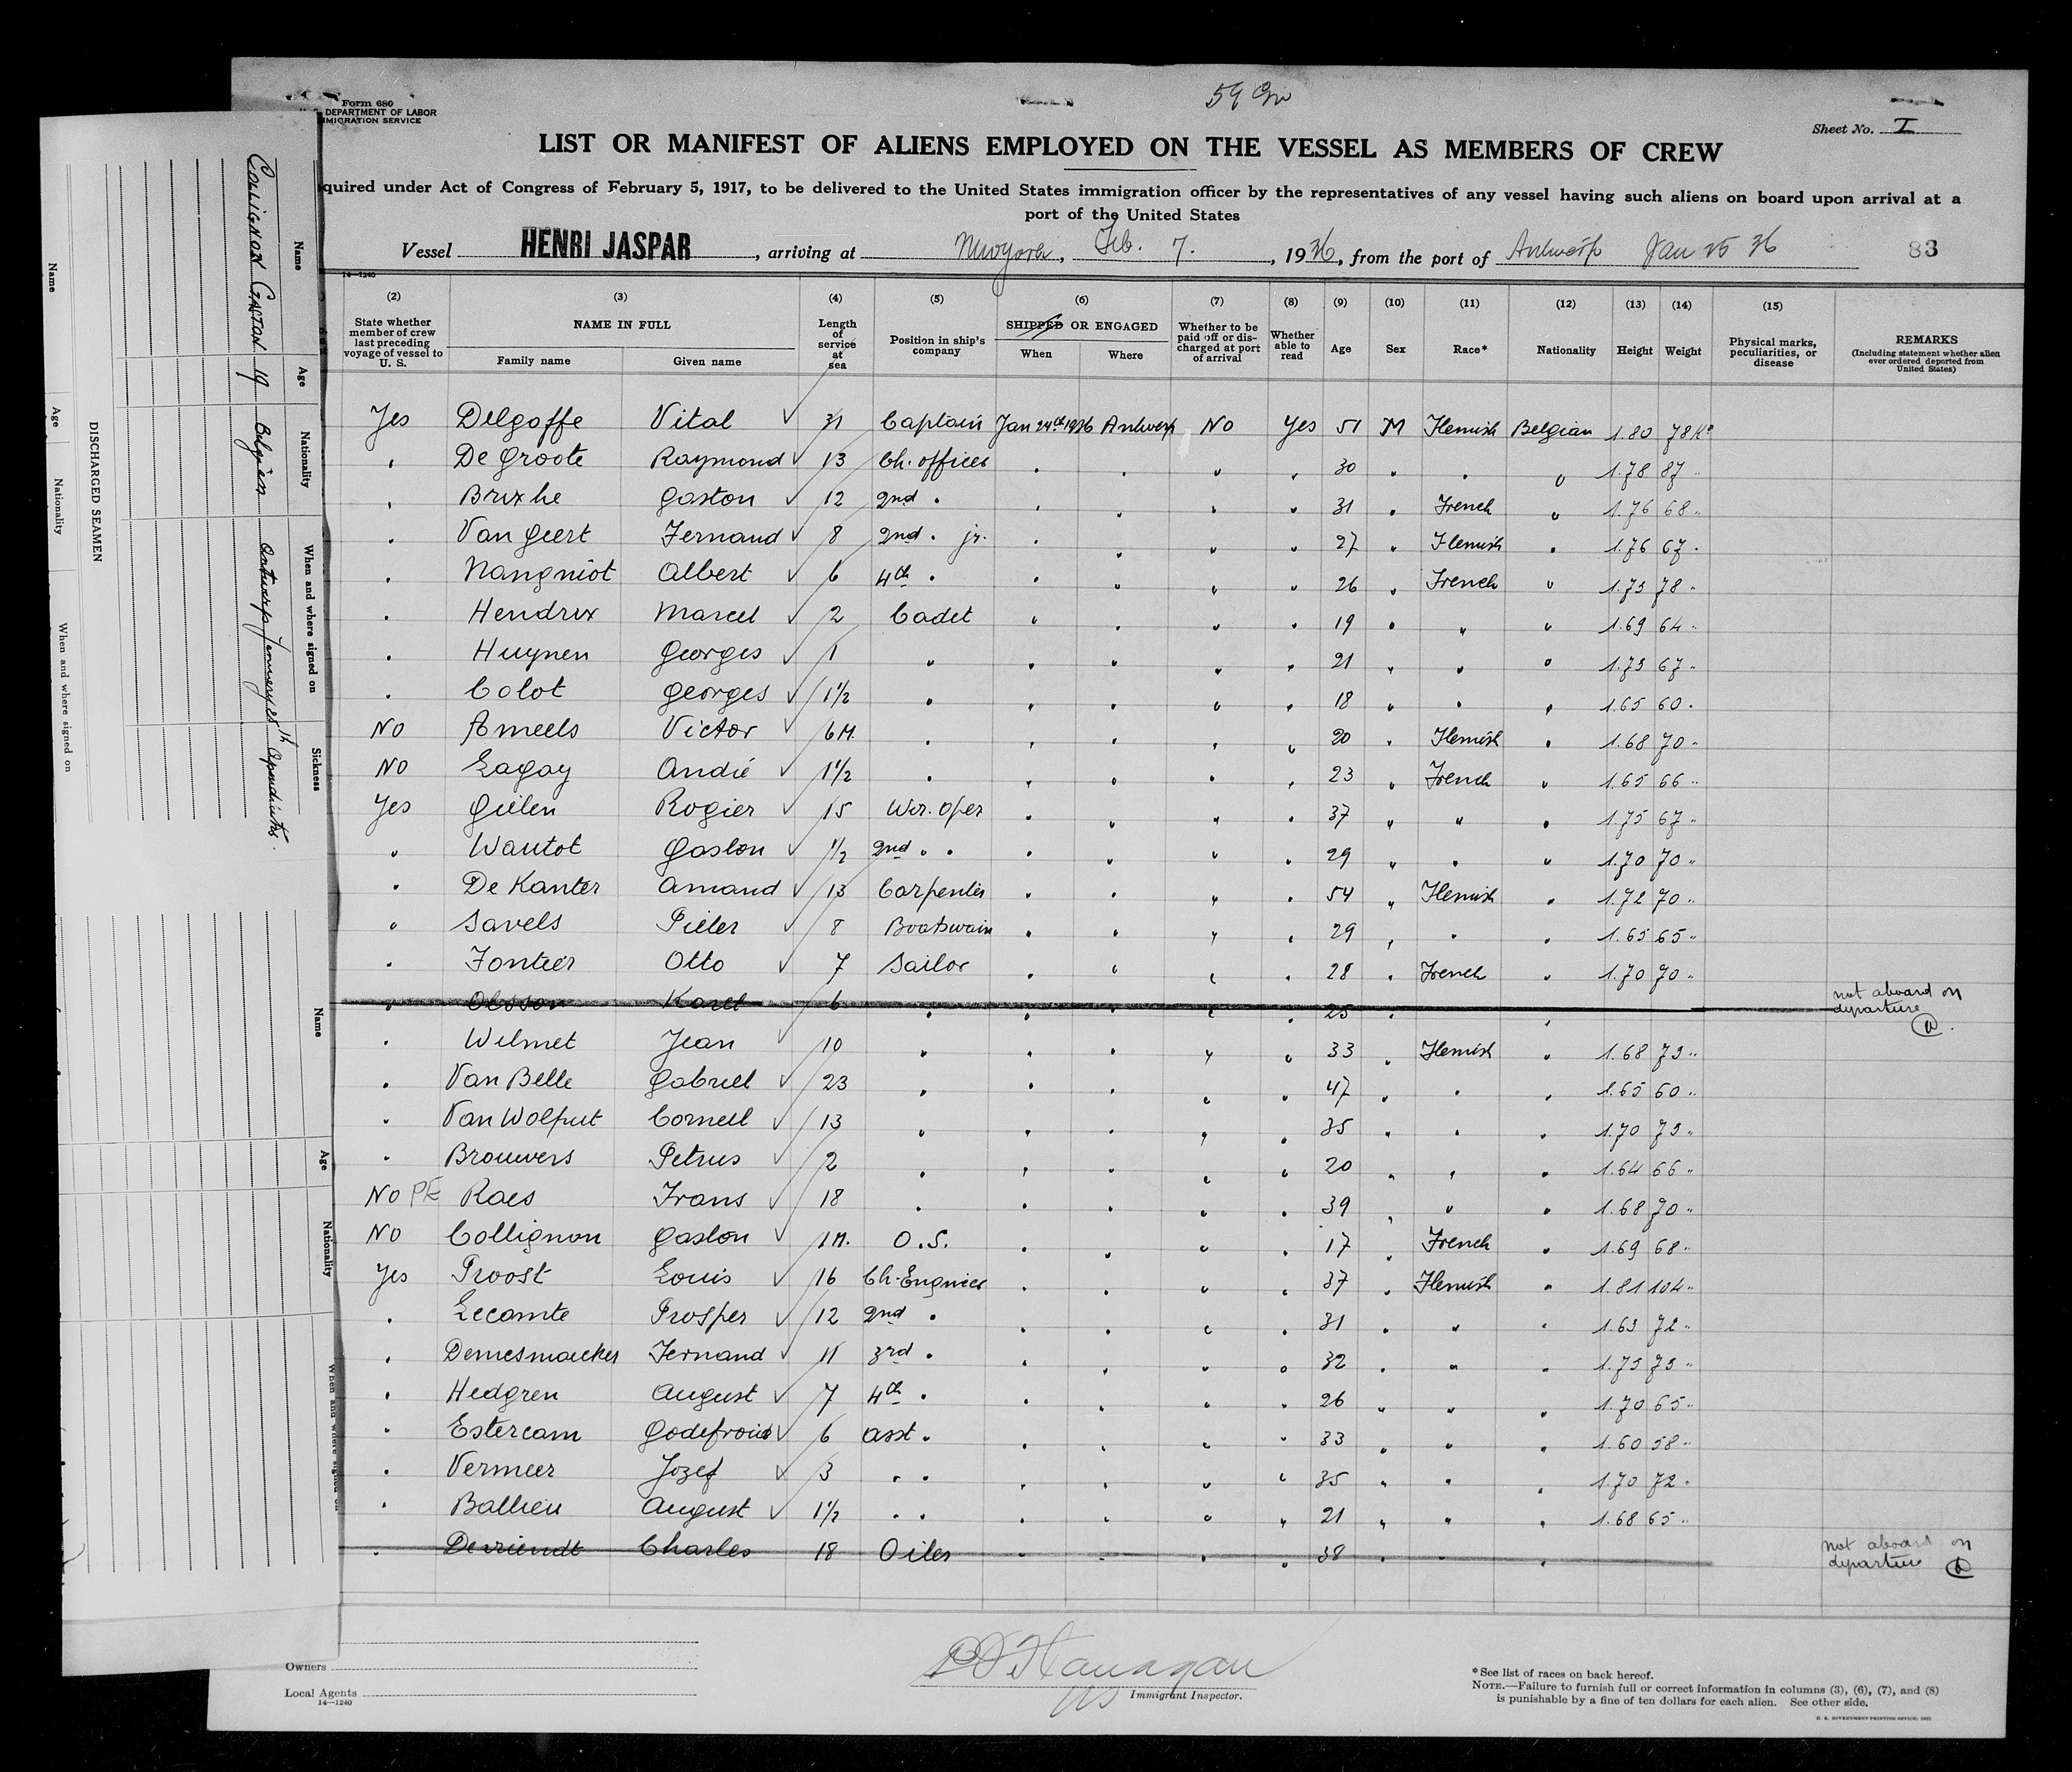 59
Form 680
DEPARTMENT OF LABOR
IMMIGRATION SERVICE
Sheet No. I
LIST OR MANIFEST OF ALIENS EMPLOYED ON THE VESSEL AS MEMBERS OF CREW
quired under Act of Congress of February 5, 1917, to be delivered to the United States immigration officer by the representatives of any vessel having such aliens on board upon arrival at a
port of the United States
Vessel HENRI JASPAR, arriving at Newyork, Feb. 7., 1936, from the port of Antwerp Jan 25 36 83
14—1240
(2) (3) (4) (5) (6) (7) (8) (9) (10) (11) (12) (13) (14) (15)
State whether member of crew last preceding voyage of vessel to U. S.
NAME IN FULL Family name Given name
Length of service at sea
Position in ship's company
SHIPPED OR ENGAGED When Where
Whether to be paid off or discharged at port of arrival
Whether able to read
Age Sex Race* Nationality Height Weight
Physical marks, peculiarities, or disease
REMARKS (Including statement whether alien ever ordered deported from United States)
Yes Delgoffe Vital 31 Captain Jan 24th 1936 Antwerp No Yes 51 M Flemish Belgian 1.80 78 Ko
" De Groote Raymond 13 Ch. officer " " " " 30 " " " 1.78 87 "
" Brixhe Gaston 12 2nd " " " " " 31 " French " 1.76 68 "
" Van Geert Fernand 8 2nd " jr. " " " " 27 " Flemish " 1.76 67 "
" Nangniot Albert 6 4th " " " " " 26 " French " 1.73 78 "
" Hendrix Marcel 2 Cadet " " " " 19 " " " 1.69 64 "
" Huynen Georges 1 " " " " " 21 " " " 1.73 67 "
" Colot Georges 1½ " " " " " 18 " " " 1.65 60 "
No Ameels Victor 6M. " " " " " 20 " Flemish " 1.68 70 "
No Lagay André 1½ " " " " " 23 " French " 1.65 66 "
Yes Gielen Rogier 15 Wir. Oper " " " " 37 " " " 1.75 67 "
" Wautot Gaston ½ 2nd " " " " " " 29 " " " 1.70 70 "
" De Kanter Amand 13 Carpenter " " " " 54 " Flemish " 1.72 70 "
" Savels Pieter 8 Boatswain " " " " 29 " " " 1.65 65 "
" Fontier Otto 7 Sailor " " " " 28 " French " 1.70 70 "
" Olsson Karel 6 " " " " " 25 " " not aboard on departure
" Wilmet Jean 10 " " " " " 33 " Flemish " 1.68 73 "
" Van Belle Gabriel 23 " " " " " 47 " " " 1.65 60 "
" Van Wolput Corneel 13 " " " " " 35 " " " 1.70 73 "
" Brouwers Petrus 2 " " " " " 20 " " " 1.64 66 "
No PE Raes Frans 18 " " " " " 39 " " " 1.68 70 "
No Collignon Gaston 1M. O.S. " " " " 17 " French " 1.69 68 "
Yes Proost Louis 16 Ch. Engineer " " " " 37 " Flemish " 1.81 104 "
" Lecomte Prosper 12 2nd " " " " " 31 " " " 1.63 72 "
" Demesmaeker Fernand 11 3rd " " " " " 32 " " " 1.75 75 "
" Hedgren August 7 4th " " " " " 26 " " " 1.70 65 "
" Estercam Godefroid 6 asst " " " " " 33 " " " 1.60 58 "
" Vermeer Jozef 3 " " " " " " 35 " " " 1.70 72 "
" Ballieu August 1½ " " " " " " 21 " " " 1.68 65 "
" Devriendt Charles 18 Oiler " " " " 38 " " " not aboard on departure
Owners
Local Agents
14—1240
Immigrant Inspector.
*See list of races on back hereof.
NOTE.—Failure to furnish full or correct information in columns (3), (6), (7), and (8)
is punishable by a fine of ten dollars for each alien. See other side.
U. S. GOVERNMENT PRINTING OFFICE
DISCHARGED SEAMEN
Name Age Nationality When and where signed on
Name Age Nationality When and where signed on Sickness
COLLIGNON GASTON 19 Belgian Antwerp Apendicitis.
Name Age Nationality When and where signed on